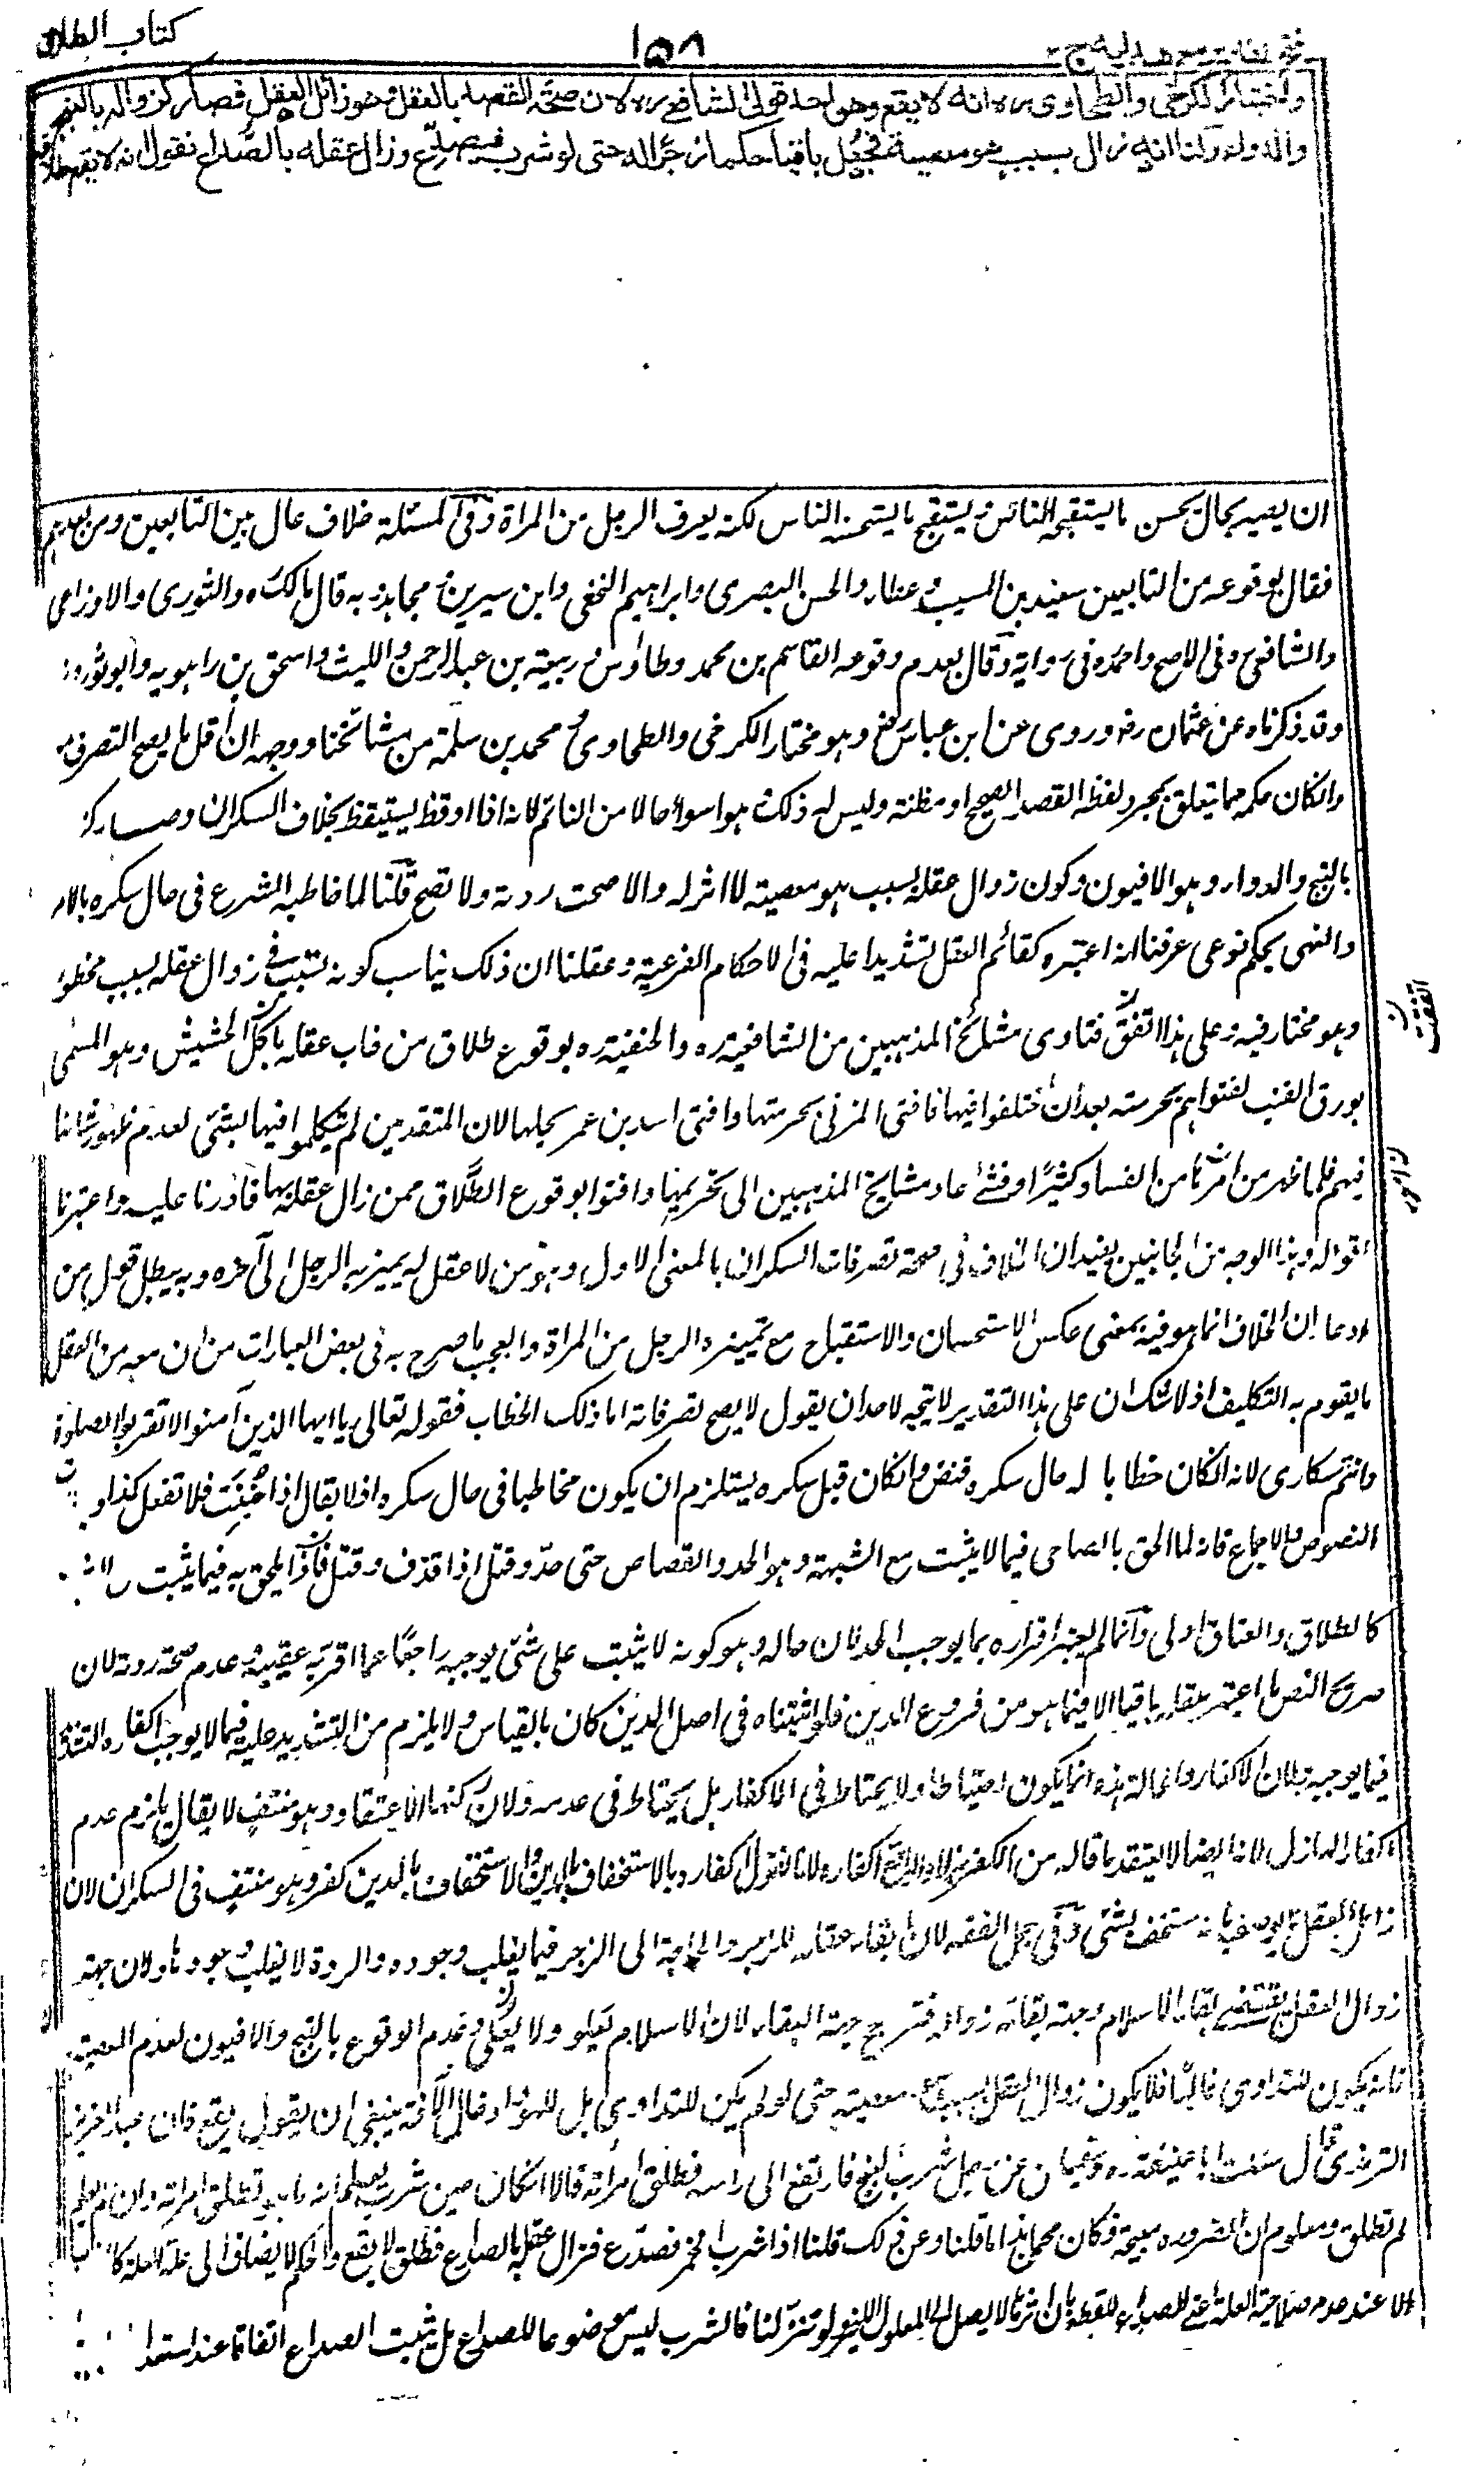 كتاب الطلاق
١٥٨
فتح القدير مع هدايه ج
واختيار الكرخي والطحاوي ره انه لا يقع وهو احد قولي الشافعي ره لان صحة القصد بالعقل وهو زائل العقل فصار كزواله بالبنج
والدواء ولنا انه زال بسبب هو معصية فجعل باقيا حكما زجرا له حتى لو شرب فصدع وزال عقله بالصداع نقول انه لا يقع طلاقه
ان يصير بحال يحسن ما يستقبحه الناس ويستقبح ما يستحسنه الناس لكنه يعرف الرجل من المراة وفي المسئلة خلاف عال بين التابعين ومن بعدهم
فقال بوقوعه من التابعين سعيد بن المسيب وعطاء والحسن البصري وابراهيم النخعي وابن سيرين ومجاهد وبه قال مالك ره والثوري والاوزاعي
والشافعي ره في الاصح واحمد ره في رواية وقال بعدم وقوعه القاسم بن محمد وطاؤس وربيعة بن عبد الرحمن والليث واسحق بن راهويه وابو ثور
وقد ذكرناه عن عثمان رض وروي عن ابن عباس رض وهو مختار الكرخي والطحاوي ومحمد بن سلمة من مشائخنا ووجهه ان اقل ما يصح التصرف به
وانكان حكمه مما يتعلق بمجرد لفظه القصد الصحيح او مظنته وليس له ذلك وهو اسوأ حالا من النائم لانه اذا اوقظ يستيقظ بخلاف السكران وصار كزواله
بالبنج والدواء وهو الافيون وكون زوال عقله بسبب هو معصية لا اثر له والا صحت ردته ولا تصح قلنا لما خاطبه الشرع في حال سكره بالامر
والنهي بحكم فرعي عرفنا انه اعتبره كقائم العقل تشديدا عليه في الاحكام الفرعية وعقلنا ان ذلك يناسب كونه تسبب في زوال عقله بسبب محظور
وهو مختار فيه وعلى هذا اتفق فتاوى مشائخ المذهبين من الشافعية ره والحنفية ره بوقوع طلاق من غاب عقله باكل الحشيش وهو المسمى
اتفقت
بورق القنب لفتواهم بحرمته بعد ان اختلفوا فيها فافتى المزني بحرمتها وافتى اسد بن عمر بحلها لان المتقدمين لم يتكلموا فيها بشئ لعدم ظهور شانها
فيهم فلما ظهر من امرها من الفساد كثيرا وفشئ عاد مشايخ المذهبين الى تحريمها وافتوا بوقوع الطلاق ممن زال عقله بها فادرنا عليه واعتبرنا
اقواله وهذا الوجه من الجانبين يفيد ان الخلاف في صحة تصرفات السكران بالمعنى الاول وهو من لا عقل له يميز به الرجل الى آخره وبه يبطل قول من
ادعا ان الخلاف انما هو فيه بمعنى عكس الاستحسان والاستقباح مع تمييزه الرجل من المراة والعجب ما صرح به في بعض العبارات من ان معه من العقل
ما يقوم به التكليف اذ لا شك ان على هذا التقدير لا يتجه لاحد ان يقول لا يصح تصرفاته اما ذلك الخطاب فقوله تعالى يا ايها الذين آمنوا لا تقربوا الصلوة
وانتم سكارى لانه انكان خطابا له حال سكره فنص وانكان قبل سكره يستلزم ان يكون مخاطبا في حال سكره اذ لا يقال اذا جننت فلا تفعل كذا و
النصوص والاجماع فانه لما الحق بالصاحي فيما لا يثبت مع الشبهة وهو الحد والقصاص حتى حد وقتل اذا قذف وقتل فلان يلحق به فيما يثبت
كالطلاق والعتاق اولى وانما لم يعتبر اقراره بما يوجب الحد لان حاله وهو كونه لا يثبت على شئ يوجبه راجعا عما اقر به عقيبه وعدم صحة ردته لان
صريح النص ما اعتبر عقله باقيا الا فيما هو من فروع الدين فلو اثبتناه في اصل الدين كان بالقياس ولا يلزم من التشديد عليه فيما لا يوجب اكفاره التشديد
فيما يوجبه ولان الاكفار والحالة هذه انما يكون احتياطا ولا يحتاط في الاكفار بل يحتاط في عدمه ولان ركنها الاعتقاد وهو منتف لا يقال يلزم عدم
اكفار الهازل لانه ايضا لا يعتقد ما قاله من الكفر هزلا والواقع اكفاره لانا نقول اكفاره بالاستخفاف بالدين والاستخفاف بالدين كفر وهو منتف في السكران لان
زائل العقل لا يوصف بانه مستخف بشئ وفي محل الفقه لان بقاء عقله للزجر والحاجة الى الزجر فيما يغلب وجوده والردة لا يغلب وجودها ولان جهة
زوال العقل يقتضي بقاء الاسلام وجهة بقائه زواله فترجح جهة البقاء لان الاسلام يعلو ولا يعلى وعدم الوقوع بالبنج والافيون لعدم المعصية
فانه يكون للتداوي غالبا فلا يكون زوال العقل بسبب هو معصية حتى لو لم يكن للتداوي بل للهو وادخال الآفة ينبغي ان يقول يقع فان عبد العزيز
الترمذي قال سئلت ابا حنيفة ره وسفيان عن رجل شرب البنج فارتفع الى راسه فطلق امرأته قالا انكان حين شرب يعلم انه ما هو تطلق امرأته وان لم يعلم
لم تطلق ومعلوم ان الضرورة مبيحة فكان محمل هذا ما قلنا وعن ذلك قلنا اذا شرب الخمر فصدع فزال عقله بالصداع فطلق لا يقع والحكم لا يضاف الى علة العلة
الا عند عدم صلاحية العلة اعني للصداع للقطع بان اثرها لا يصل الى المعلول الاخير ولو تنزلنا فالشرب ليس موضوعا للصداع بل يثبت الصداع اتفاقا عند استعداد